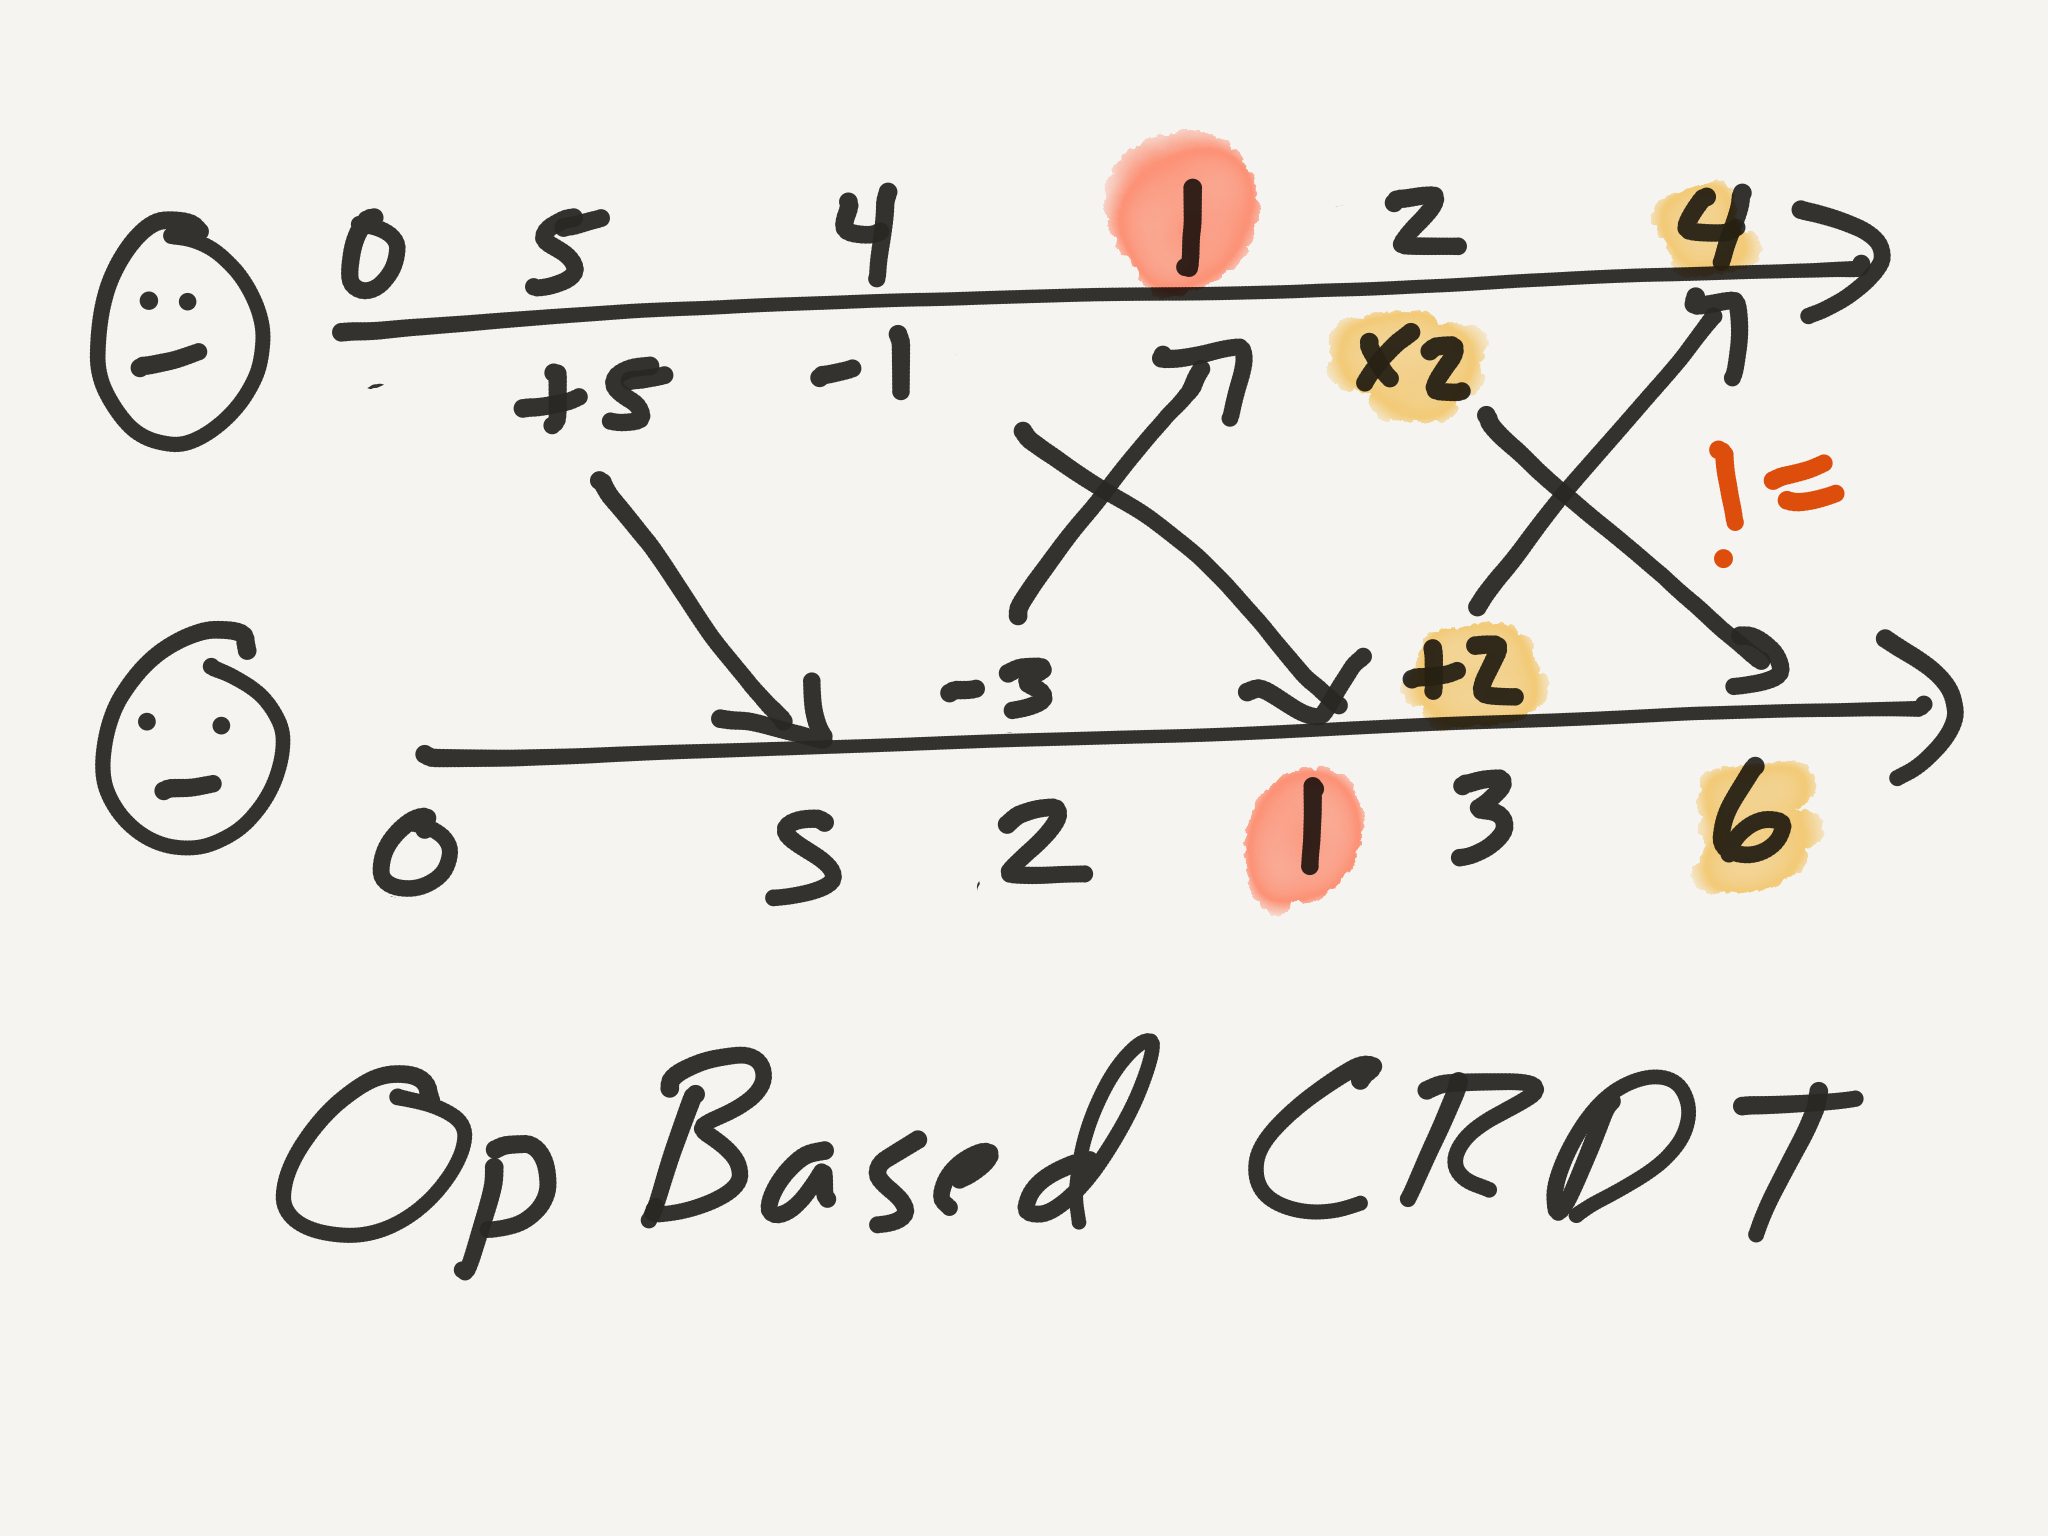 0 5 4 1 2 4
+5 -1 x2
!=
-3 +2
0 5 2 1 3 6
Op Based CRDT